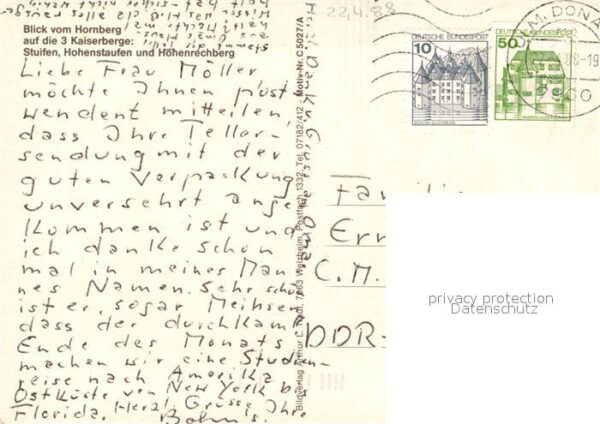 22.4.88
M. DONA
DEUTSCHE BUNDESPOST
10
SCHLOSS GLÜCKSBURG
DEUTSCHE BUNDESPOST
50
88-19
Blick vom Hornberg
auf die 3 Kaiserberge:
Stuifen, Hohenstaufen und Hohenrechberg
Liebe Frau Möller
möchte Ihnen post
wendent mitteilen,
dass Ihre Teller-
sendung mit der
guten Verpackung
unversehrt ange
kommen ist und
ich danke schon
mal in meines Man
nes Namen. Sehr schö
ist er, sogar Meihsen
dass der durchkam
Ende des Monats
machen wir eine Studien-
reise nach Amerika
Ostküste von New York b
Florida. Herzl. Grüsse Ihre
Böhm's.
Bildverlag Arthur L. 7063 Welzheim, Postfach 1332, Tel. 07182/412 Motiv-Nr. C 5027/A
Familie
Ern
C.M.
DDR-
privacy protection
Datenschutz